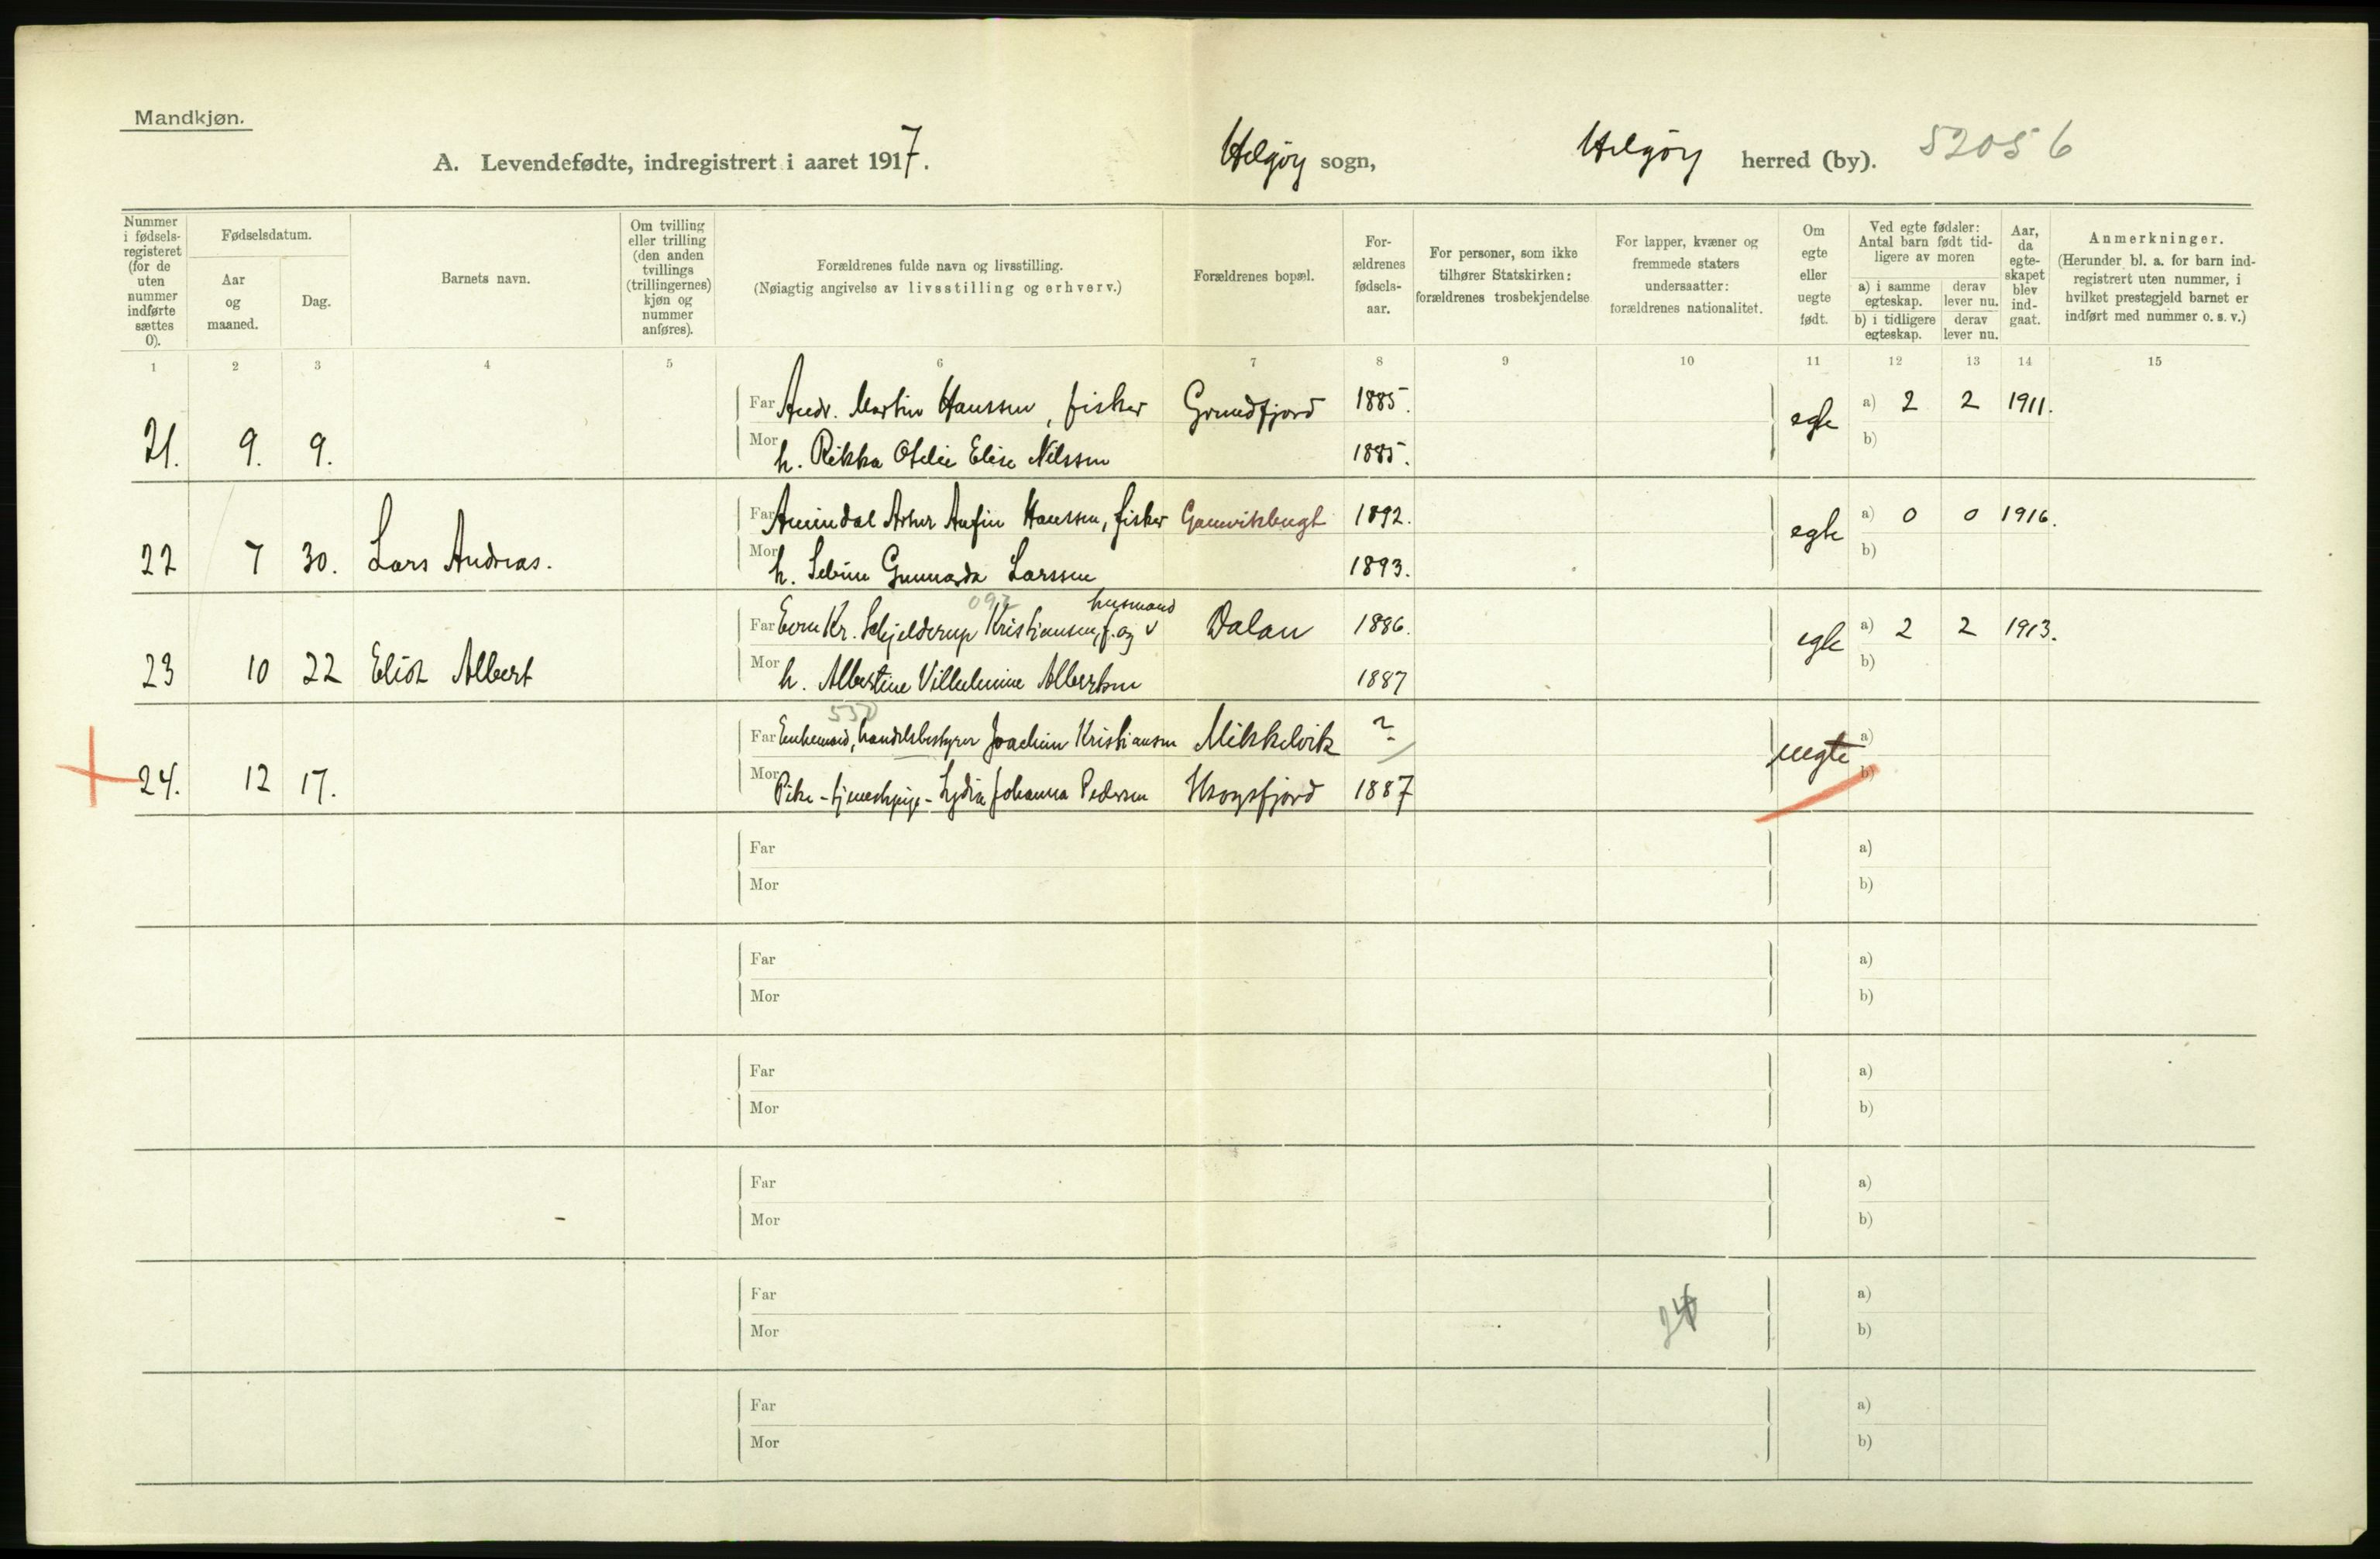 Mandkjøn.
A. Levendefødte, indregistrert i aaret 1917. Helgøy sogn, Helgøy herred (by). 52056
Nummer i fødsels-registeret (for de uten nummer indførte sættes 0).
Fødselsdatum.
Aar og maaned.
Dag.
Barnets navn.
Om tvilling eller trilling (den anden tvillings (trillingernes) kjøn og nummer anføres).
Forældrenes fulde navn og livsstilling.
(Nøiagtig angivelse av livsstilling og erhverv.)
Forældrenes bopæl.
For-ældrenes fødsels-aar.
For personer, som ikke tilhører Statskirken: forældrenes trosbekjendelse
For lapper, kvæner og fremmede staters undersaatter: forældrenes nationalitet.
Om egte eller uegte født.
Ved egte fødsler: Antal barn født tid-ligere av moren
a) i samme egteskap.
derav lever nu.
b) i tidligere egteskap.
derav lever nu.
Aar, da egte-skapet blev ind-gaat.
Anmerkninger.
(Herunder bl. a. for barn ind-registrert uten nummer, i hvilket prestegjeld barnet er indført med nummer o. s. v.)
1 2 3 4 5 6 7 8 9 10 11 12 13 14 15
Far Andr. Martin Hanssen, fisker Grundfjord 1885. egte a) 2 2 1911.
21. 9. 9. Mor h. Rikka Otelie Elise Nilssen 1885. b)
Far Arthur Hanssen, fisker Gamvikbugt 1892. egte a) 0 0 1916.
22 7 30. Lars Andreas. Mor h. Gunnarda Larssen 1893. b)
092 husmand
Far Kr. Schjelderup Kristiansen, f. og v Dalan 1886. egte a) 2 2 1913.
23 10 22 Eliot Albert Mor h. Albertine Vilhelmine Albertsen 1887 b)
Far Enkemand, handelsbestyrer Joachim Kristiansen Mikkelvik ? uegte a)
24. 12 17. Mor Pike - tjenestepige - Lydia Johanna Pedersen 1887 b)
Far a)
Mor b)
Far a)
Mor b)
Far a)
Mor b)
Far a)
Mor b)
Far a)
Mor b)
Far a)
Mor b)